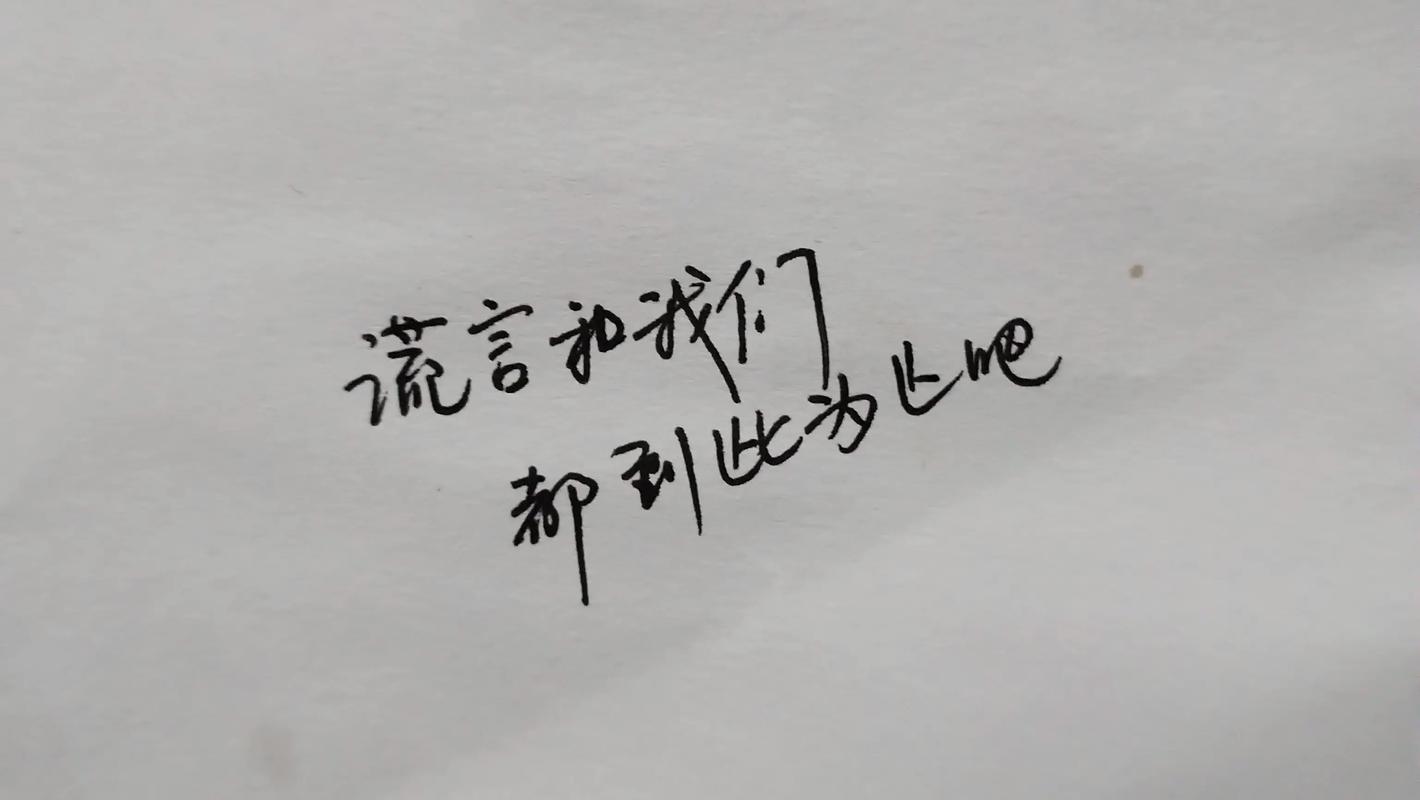 谎言和我们
都到此为止吧